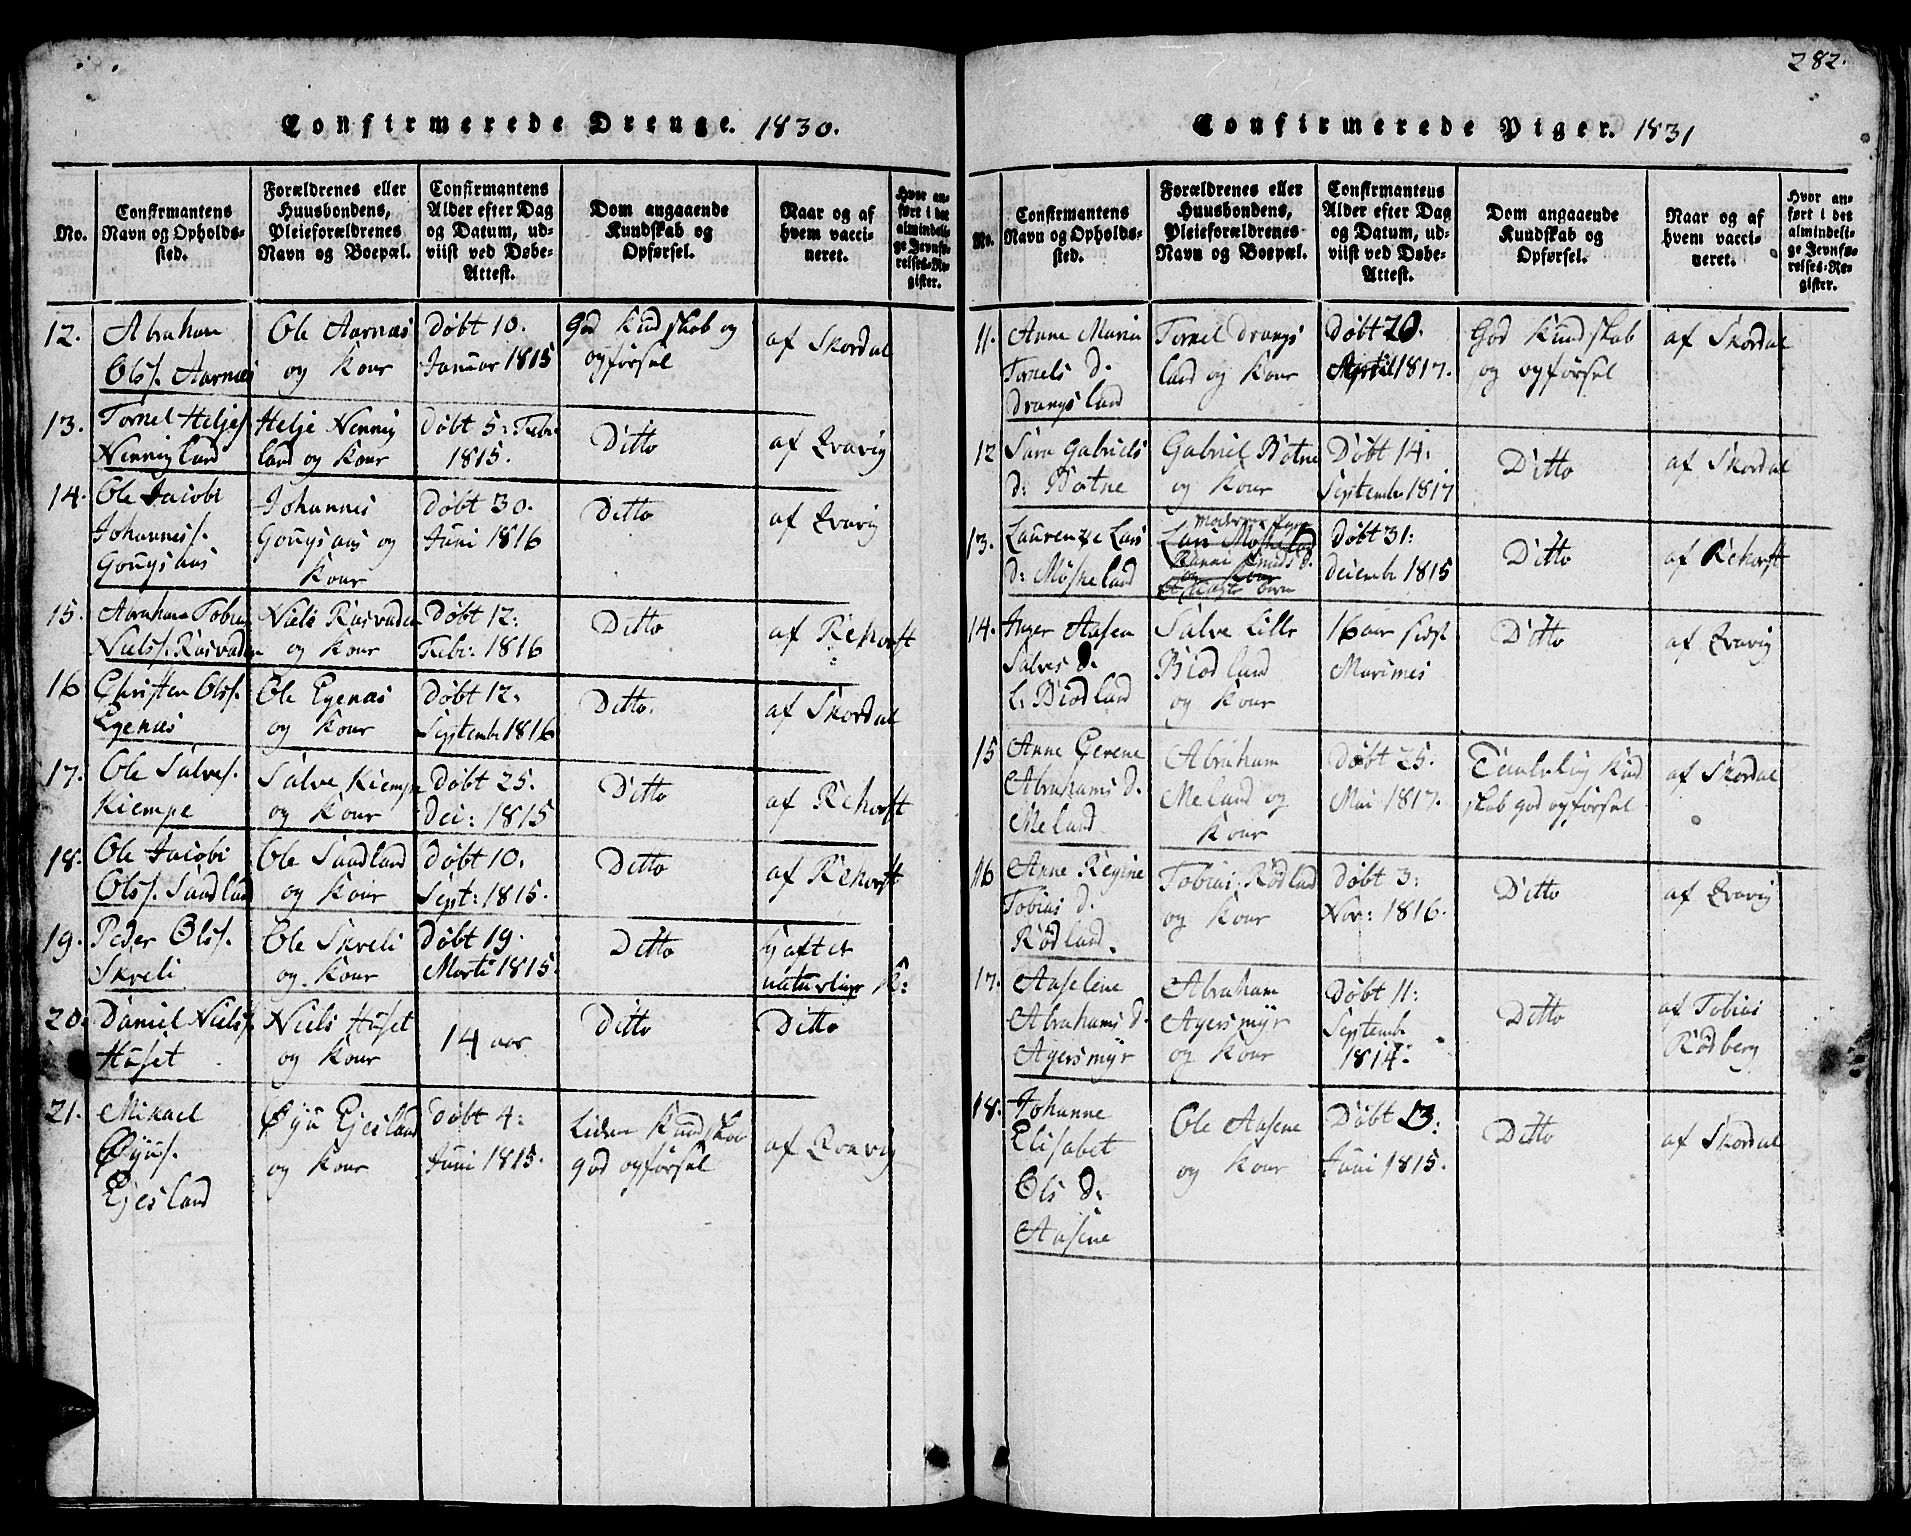 282.
Confirmerede Drenge. 1830.
No.
Confirmantens
Navn og Opholds-
sted.
Forældrenes eller
Huusbondens,
Pleieforældrenes
Navn og Boepæl.
Confirmantens
Alder efter Dag
og Datum, ud-
viist ved Døbe-
Attest.
Dom angaaende
Kundskab og
Opførsel.
Naar og af
hvem vacci-
neret.
Hvor an-
ført i det
almindeli-
ge Jevnfø-
relses-Re-
gister.
12.
Abraham
Olss. Aarnæs
Ole Aarnæs
og Kone
Døbt 10.
Januar 1815
God Kundskab og
opførsel
af Skordal
13.
Tornel Heljes.
Nenningland
Helje Nenning
land og Kone
Døbt 5: Febr.
1815.
Ditto
af Qvavig
14.
Ole Jacobi
Johanness.
Gougsaas
Johannes
Gougsaas og
Kone
Døbt 30.
Juni 1816
Ditto
af Qvavig
15.
Abraham Tobias
Nielss. Rasvaden
Niels Rasvaden
og Kone
Døbt 12:
Febr: 1816
Ditto
af Rehorst
16
Christen Olss.
Egenæs
Ole Egenæs
og Kone
Døbt 12:
Septembr 1816
Ditto.
af Skordal
17.
Ole Salves.
Kiempe
Salve Kiempe
og Kone
Døbt 25.
Dec: 1815
Ditto
af Rehorst
18.
Ole Jacobi
Olss. Sandland
Ole Sandland
og Kone
Døbt 10.
Sept: 1815.
Ditto
af Rehorst
19.
Peder Olss.
Skreli
Ole Skreli
og Kone
Døbt 19.
Marti 1815.
Ditto
haft de
naturlige K:
20.
Daniel Nielss.
Huset
Niels Huset
og Kone
14 aar
Ditto
Ditto
21.
Mikael
Øyus.
Ejesland
Øyu Ejesland
og Kone
Døbt 4:
Juni 1815.
Liden Kundskab
god opførsel
af Qvavig
Confirmerede Piger. 1831
No.
Confirmantens
Navn og Opholds-
sted.
Forældrenes eller
Huusbondens,
Pleieforældrenes
Navn og Boepæl.
Confirmantens
Alder efter Dag
og Datum, ud-
viist ved Døbe-
Attest.
Dom angaaende
Kundskab og
Opførsel.
Naar og af
hvem vacci-
neret.
Hvor an-
ført i det
almindeli-
ge Jevnfø-
relses-Re-
gister.
11.
Anne Maria
Tornels d.
Drangsland
Tornel Drangs
land og Kone
Døbt 20.
April 1817.
God Kundskab
og opførsel
af Skordal
12
Sara Gabriels
d: Botne
Gabriel Botne
og Kone
Døbt 14:
Septembr 1817
Ditto
af Skordal
13.
Laurenze Lars
d: Møskeland
Moderen
Lars Møskeland
Knuds d.
og Kone
Døbt 31:
Decembr 1815
Ditto
af Rehorst
14.
Inger Aasen
Salves d.
L: Biodland
Salve Lille
Biodland
og Kone
16 aar sidst
Marimes
Ditto
af Qvavig
15
Anne Gerene
Abrahams d.
Meland
Abraham
Meland og
Kone
Døbt 25.
Mai 1817.
Taalelig Kund
skab god opførsel
af Skordal
16
Anne Regine
Tobias d.
Rødland.
Tobias Rødland
og Kone
Døbt 3:
Nov: 1816.
Ditto
af Qvavig
17.
Aaselene
Abrahams d.
Agersmyr
Abraham
Agersmyr
og Kone
Døbt 11:
Septemb
1814.
Ditto
af Tobias
Rødberg
18.
Johanne
Elisabet
Ols d:
Aasene
Ole Aasene
og Kone
Døbt 13:
Juni 1815.
Ditto
af Skordal